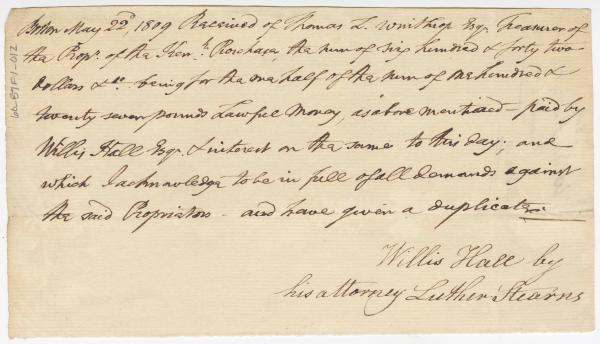 Boston May 22d, 1809 Received of Thomas L. Winthrop Esq. Treasurer of
the Propr. of the Ken.k Purchase, the sum of six hundred & forty two
Dollars & being for the one half of the sum of one hundred &
twenty seven pounds Lawful Money, as above mentioned - paid by
Willis Hall Esq. & interest on the same to this day; and
which I acknowledge to be in full of all demands against
the said Propriators - and have given a duplicate.
Willis Hall by
his attorney Luther Stearns